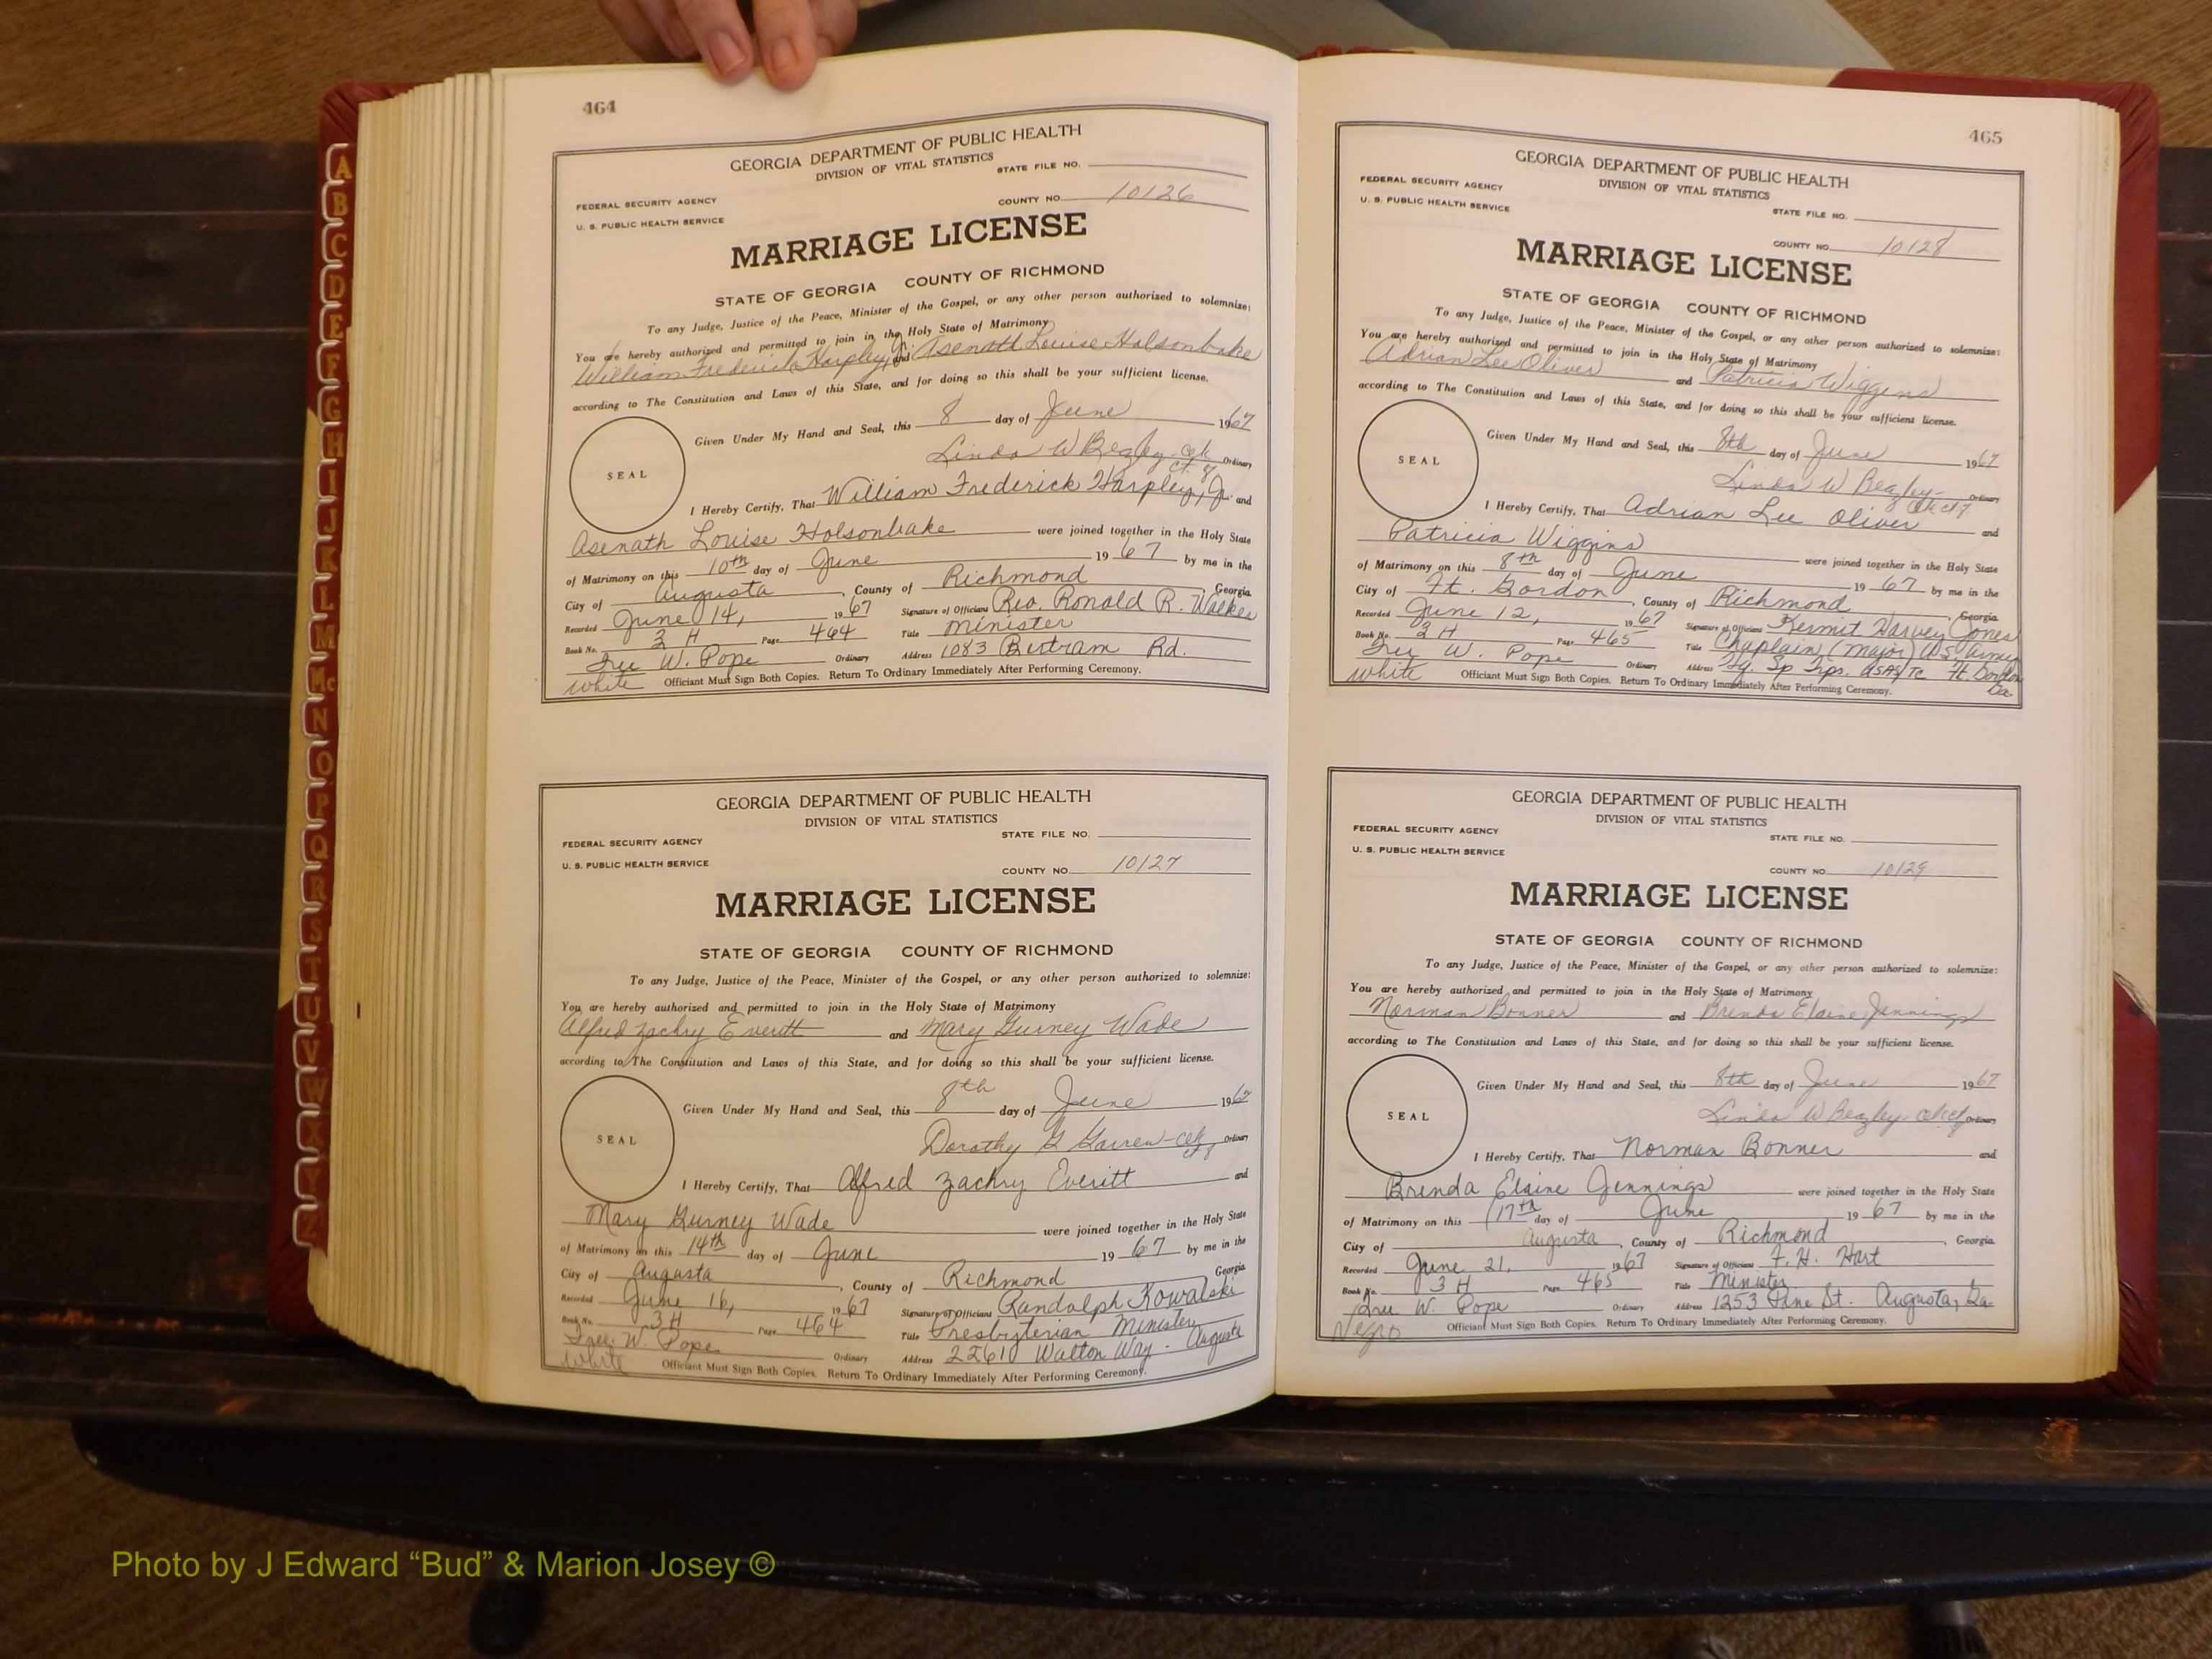 464
GEORGIA DEPARTMENT OF PUBLIC HEALTH
DIVISION OF VITAL STATISTICS
STATE FILE NO.
FEDERAL SECURITY AGENCY
COUNTY NO. 10126
U. S. PUBLIC HEALTH SERVICE
MARRIAGE LICENSE
STATE OF GEORGIA COUNTY OF RICHMOND
To any Judge, Justice of the Peace, Minister of the Gospel, or any other person authorized to solemnize:
You are hereby authorized and permitted to join in the Holy State of Matrimony
William Frederick Harpley, Jr. and Asenath Louise Holsonbake
according to The Constitution and Laws of this State, and for doing so this shall be your sufficient license.
Given Under My Hand and Seal, this 8 day of June 1967
SEAL
Linda W Beazley - Ordinary
I Hereby Certify, That William Frederick Harpley, Jr. and
Asenath Louise Holsonbake were joined together in the Holy State
of Matrimony on this 10th day of June 1967 by me in the
City of Augusta, County of Richmond Georgia
Recorded June 14, 1967 Signature of Officiant Rev. Ronald R. Walker
Book No. 3 H Page 464 Title Minister
W. Pope Ordinary Address 1083 Bertram Rd.
white Officiant Must Sign Both Copies. Return To Ordinary Immediately After Performing Ceremony.
GEORGIA DEPARTMENT OF PUBLIC HEALTH
DIVISION OF VITAL STATISTICS
STATE FILE NO.
FEDERAL SECURITY AGENCY
U. S. PUBLIC HEALTH SERVICE
COUNTY NO. 10127
MARRIAGE LICENSE
STATE OF GEORGIA COUNTY OF RICHMOND
To any Judge, Justice of the Peace, Minister of the Gospel, or any other person authorized to solemnize:
You are hereby authorized and permitted to join in the Holy State of Matrimony
Alfred Zachry Everitt and Mary Gurney Wade
according to The Constitution and Laws of this State, and for doing so this shall be your sufficient license.
Given Under My Hand and Seal, this 8th day of June 1967
SEAL
Dorothy Ordinary
I Hereby Certify, That Alfred Zachry Everitt and
Mary Gurney Wade were joined together in the Holy State
of Matrimony on this 14th day of June 1967 by me in the
City of Augusta, County of Richmond Georgia
Recorded June 16, 1967 Signature of Officiant Randolph Kowalski
Book No. 3H Page 464 Title Presbyterian Minister
W. Pope Ordinary Address Walton Way - Augusta
white Officiant Must Sign Both Copies. Return To Ordinary Immediately After Performing Ceremony.
465
GEORGIA DEPARTMENT OF PUBLIC HEALTH
DIVISION OF VITAL STATISTICS
FEDERAL SECURITY AGENCY
U. S. PUBLIC HEALTH SERVICE
STATE FILE NO.
COUNTY NO. 10128
MARRIAGE LICENSE
STATE OF GEORGIA COUNTY OF RICHMOND
To any Judge, Justice of the Peace, Minister of the Gospel, or any other person authorized to solemnize:
You are hereby authorized and permitted to join in the Holy State of Matrimony
Adrian Lee Oliver and Patricia Wiggins
according to The Constitution and Laws of this State, and for doing so this shall be your sufficient license.
Given Under My Hand and Seal, this 8th day of June 1967
SEAL
Linda W Beazley - Ordinary
I Hereby Certify, That Adrian Lee Oliver and
Patricia Wiggins were joined together in the Holy State
of Matrimony on this 8th day of June 1967 by me in the
City of Ft. Gordon, County of Richmond, Georgia
Recorded June 12, 1967 Signature of Officiant Kermit Harvey Jones
Book No. 3H Page 465 Title Chaplain (Major) US Army
W. Pope Ordinary Address Hq. Sp Trps. Ft. Gordon Ga.
white Officiant Must Sign Both Copies. Return To Ordinary Immediately After Performing Ceremony.
GEORGIA DEPARTMENT OF PUBLIC HEALTH
DIVISION OF VITAL STATISTICS
FEDERAL SECURITY AGENCY
STATE FILE NO.
U. S. PUBLIC HEALTH SERVICE
COUNTY NO. 10129
MARRIAGE LICENSE
STATE OF GEORGIA COUNTY OF RICHMOND
To any Judge, Justice of the Peace, Minister of the Gospel, or any other person authorized to solemnize:
You are hereby authorized and permitted to join in the Holy State of Matrimony
Norman Bonner and Brenda Elaine Jennings
according to The Constitution and Laws of this State, and for doing so this shall be your sufficient license.
Given Under My Hand and Seal, this 8th day of June 1967
SEAL
Linda W Beazley - Ordinary
I Hereby Certify, That Norman Bonner and
Brenda Elaine Jennings were joined together in the Holy State
of Matrimony on this 17th day of June 1967 by me in the
City of Augusta, County of Richmond, Georgia
Recorded June 21, 1967 Signature of Officiant F. H. Hart
Book No. 3 H Page 465 Title Minister
W. Pope Ordinary Address 1253 Pine St. Augusta, Ga.
Negro Officiant Must Sign Both Copies. Return To Ordinary Immediately After Performing Ceremony.
A
B
C
D
E
F
G
H
I
J
K
L
M
Mc
N
O
P
Q
R
S
T
U
V
W
X
Y
Z
Photo by J Edward “Bud” & Marion Josey ©